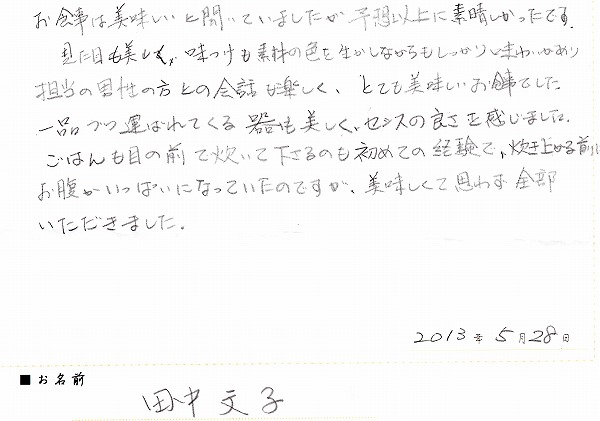 お食事は美味しいと聞いていましたが予想以上に素晴しかったです。
見た目も美しく、味つけも素材の色を生かしながらもしっかりと味わいがあり
担当の男性の方との会話も楽しく、とても美味しいお食事でした
一品づつ運ばれてくる器も美しく、センスの良さを感じました。
ごはんも目の前で炊いて下さるのも初めての経験で、炊き上がる前に
お腹がいっぱいになっていたのですが、美味しくて思わず全部
いただきました。
2013年5月28日
■お名前
田中文子